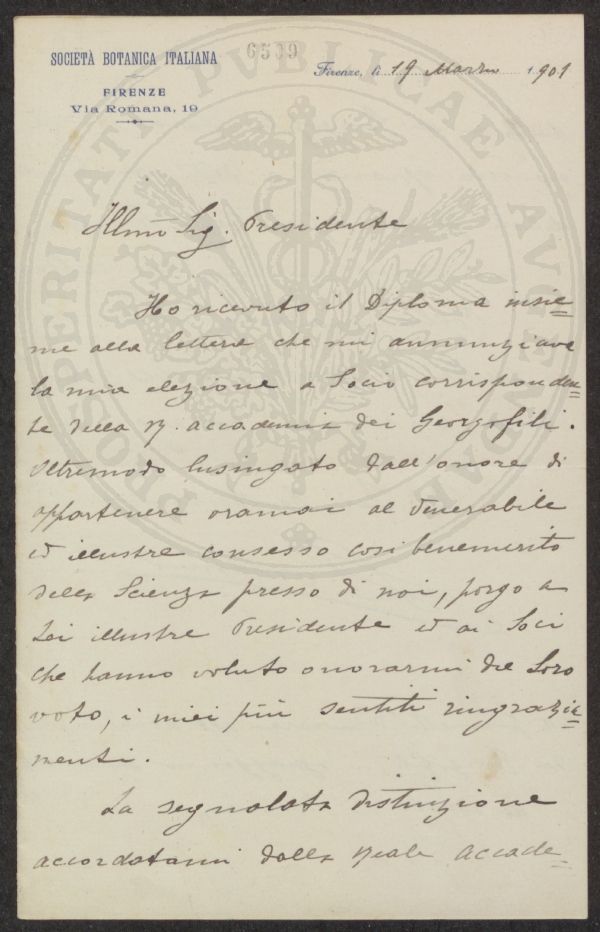 SOCIETÀ BOTANICA ITALIANA
FIRENZE
Via Romana, 19
6509
Firenze, li 19 Marzo 1901
PROSPERITATI PVBLICAE AVGENDAE
Illmo Sig. Presidente
Ho ricevuto il Diploma insie=
me alla lettera che mi annunziava
la mia elezione a Socio corrisponden=
te della R. accademia dei Georgofili.
Oltremodo lusingato dall'onore di
appartenere oramai al venerabile
ed illustre consesso così benemerito
della Scienza presso di noi, porgo a
Lei illustre Presidente ed ai Soci
che hanno voluto onorarmi del Loro
voto, i miei più sentiti ringrazia=
menti.
La segnalata distinzione
accordatami dalla Reale Accade=